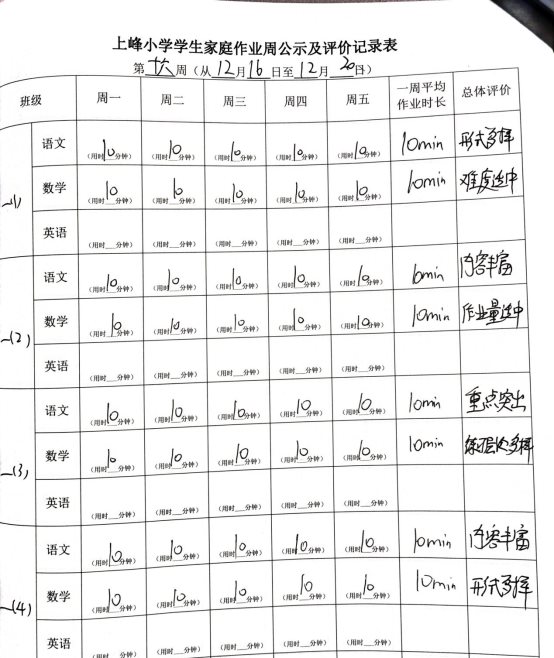 上峰小学学生家庭作业周公示及评价记录表
第十六周（从12月16日至12月20日）
班级 周一 周二 周三 周四 周五 一周平均作业时长 总体评价
一(1) 语文 （用时10分钟） （用时10分钟） （用时10分钟） （用时10分钟） （用时10分钟） 10min 形式多样
数学 （用时10分钟） （用时10分钟） （用时10分钟） （用时10分钟） （用时10分钟） 10min 难度适中
英语 （用时__分钟） （用时__分钟） （用时__分钟） （用时__分钟） （用时__分钟）
一(2) 语文 （用时10分钟） （用时10分钟） （用时10分钟） （用时10分钟） （用时10分钟） 10min 内容丰富
数学 （用时10分钟） （用时10分钟） （用时10分钟） （用时10分钟） （用时10分钟） 10min 作业量适中
英语 （用时__分钟） （用时__分钟） （用时__分钟） （用时__分钟） （用时__分钟）
一(3) 语文 （用时10分钟） （用时10分钟） （用时10分钟） （用时10分钟） （用时10分钟） 10min 重点突出
数学 （用时10分钟） （用时10分钟） （用时10分钟） （用时10分钟） （用时10分钟） 10min 多样
英语 （用时__分钟） （用时__分钟） （用时__分钟） （用时__分钟） （用时__分钟）
一(4) 语文 （用时10分钟） （用时10分钟） （用时10分钟） （用时10分钟） （用时10分钟） 10min 内容丰富
数学 （用时10分钟） （用时10分钟） （用时10分钟） （用时10分钟） （用时10分钟） 10min 形式多样
英语 （用时__分钟） （用时__分钟） （用时__分钟） （用时__分钟） （用时__分钟）